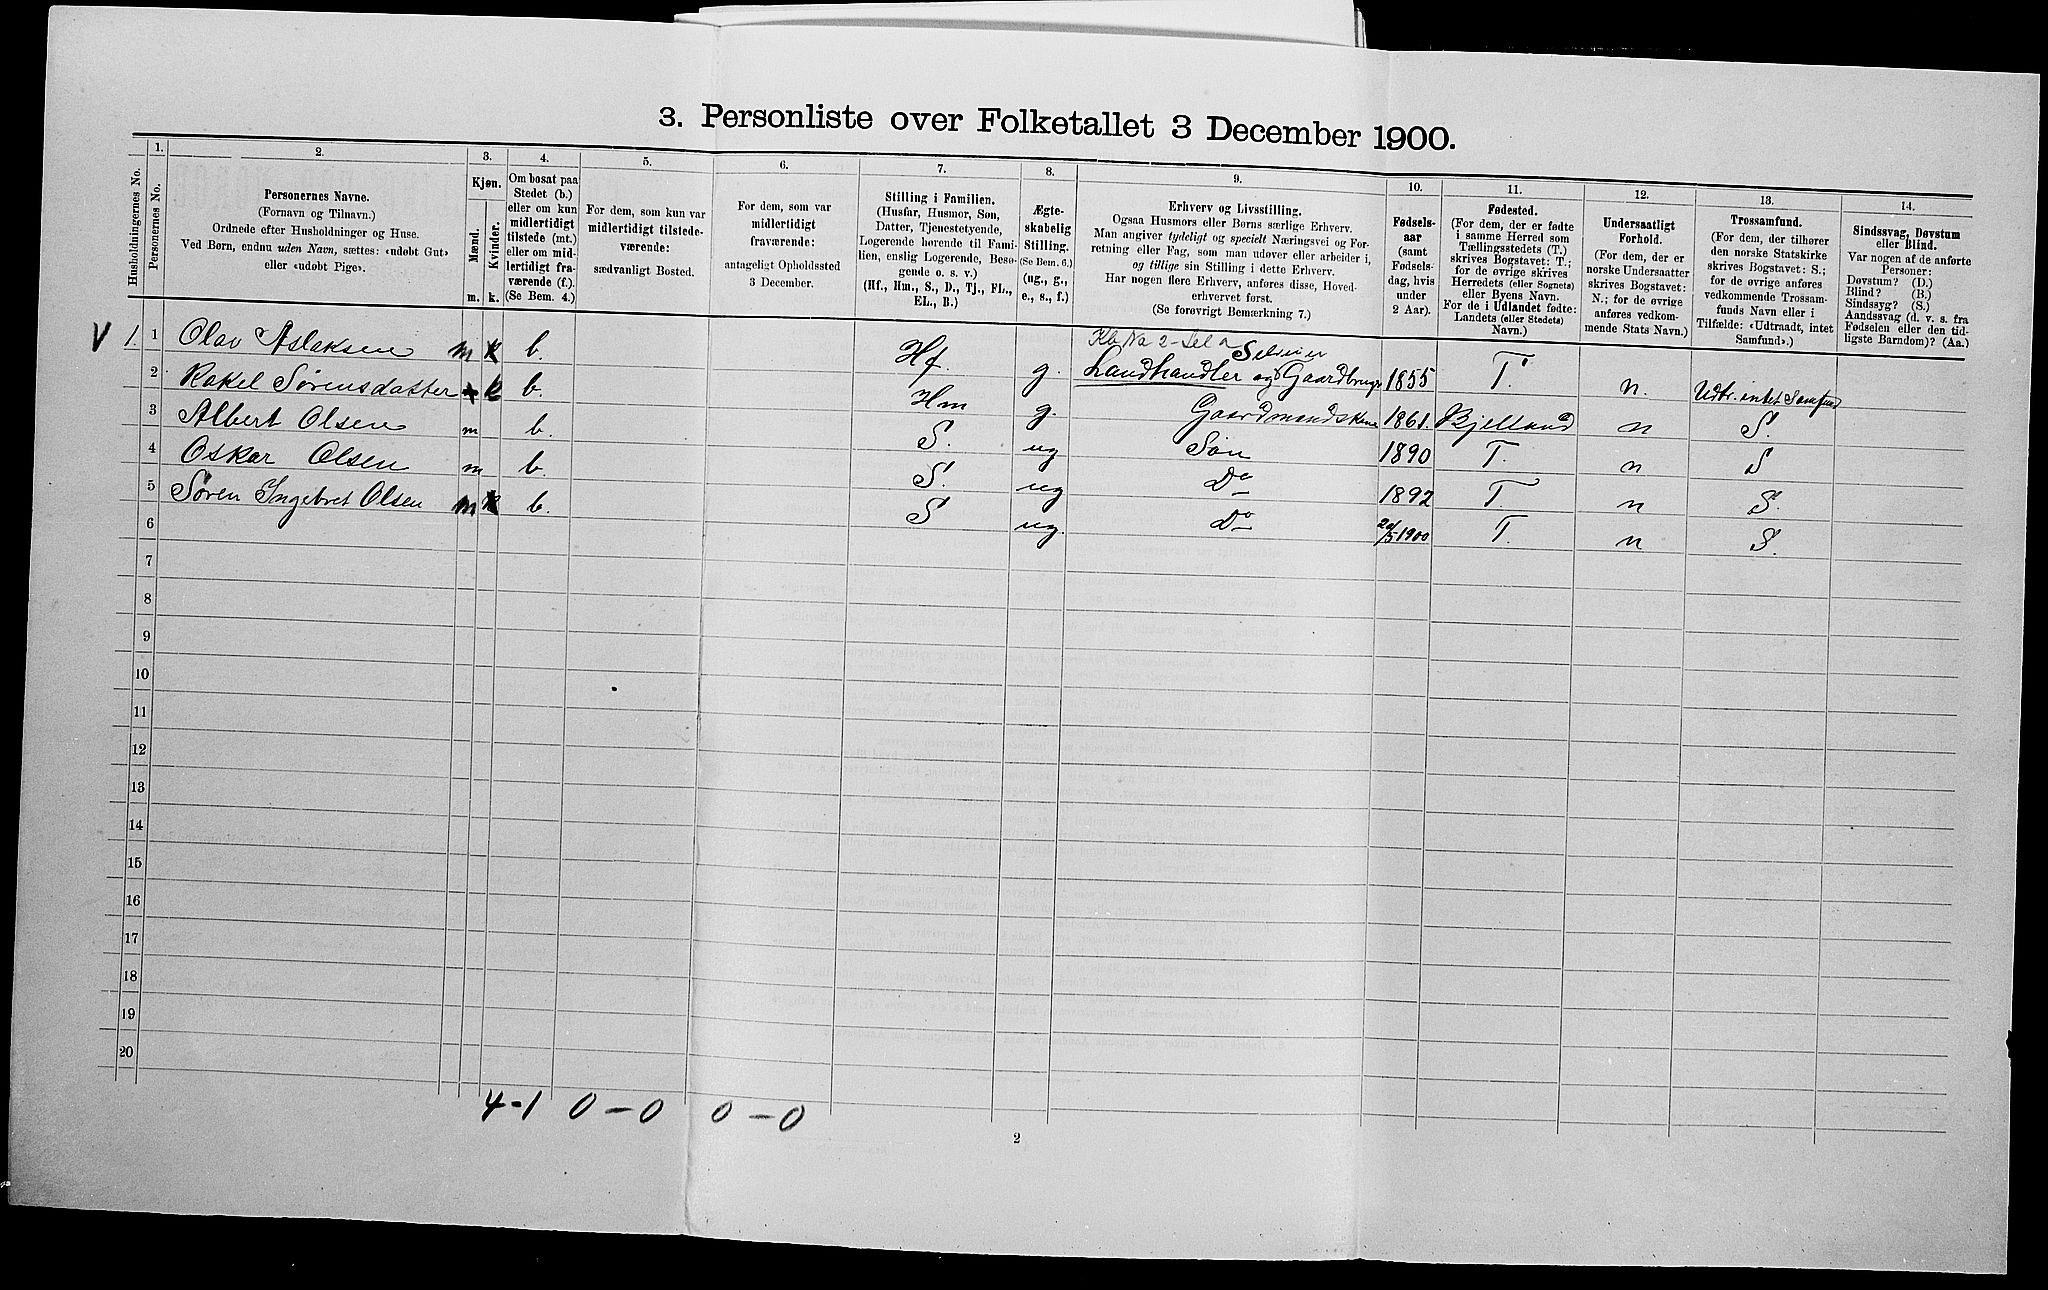 3. Personliste over Folketallet 3 December 1900.
Husholdningernes No.
1.
Personernes No.
2.
Personernes Navne.
(Fornavn og Tilnavn.)
Ordnede efter Husholdninger og Huse.
Ved Børn, endnu uden Navn, sættes: «udøbt Gut»
eller «udøbt Pige».
3.
Kjøn.
Mænd.
m.
Kvinder.
k.
4.
Om bosat paa
Stedet (b.)
eller om kun
midlertidigt
tilstede (mt.)
eller om mid-
lertidigt fra-
værende (f.).
(Se Bem. 4.)
5.
For dem, som kun var
midlertidigt tilstede-
værende:
sædvanligt Bosted.
6.
For dem, som var
midlertidigt
fraværende:
antageligt Opholdssted
3 December.
7.
Stilling i Familien.
(Husfar, Husmor, Søn,
Datter, Tjenestetyende,
Logerende hørende til Fami-
lien, enslig Logerende, Besø-
gende o. s. v.)
(Hf., Hm., S., D., Tj., FL.,
EL., B.)
8.
Ægte-
skabelig
Stilling.
(Se Bem. 6.)
(ug., g.,
e., s., f.)
9.
Erhverv og Livsstilling.
Ogsaa Husmors eller Børns særlige Erhverv.
Man angiver tydeligt og specielt Næringsvei og For-
retning eller Fag, som man udøver eller arbeider i,
og tillige sin Stilling i dette Erhverv.
Har nogen flere Erhverv, anføres disse, Hoved-
erhvervet først.
(Se forøvrigt Bemærkning 7.)
10.
Fødsels-
aar
(samt
Fødsels-
dag, hvis
under
2 Aar).
11.
Fødested.
(For dem, der er fødte
i samme Herred som
Tællingsstedets (T.)
skrives Bogstavet: T.;
for de øvrige skrives
Herredets (eller Sognets)
eller Byens Navn.
For de i Udlandet fødte:
Landets (eller Stedets)
Navn.)
12.
Undersaatligt
Forhold.
(For dem, der er
norske Undersaatter
skrives Bogstavet:
N.; for de øvrige
anføres vedkom-
mende Stats Navn.)
13.
Trossamfund.
(For dem, der tilhører
den norske Statskirke
skrives Bogstavet: S.;
for de øvrige anføres
vedkommende Trossam-
funds Navn eller i
Tilfælde: «Udtraadt, intet
Samfund».)
14.
Sindssvag, Døvstum
eller Blind.
Var nogen af de anførte
Personer:
Døvstum? (D.)
Blind? (B.)
Sindssyg? (S.)
Aandssvag (d. v. s. fra
Fødselen eller den tid-
ligste Barndom)? (Aa.)
V 1. 1 Olav Aslaksen m k b. Hf. g. Landhandler og Gaardbruger 1855 T. n. Udtr. intet Samfund
2 Rakel Sørensdatter k b. Hm g. Gaardmandskone 1861. Bjelland n S.
3 Albert Olsen m b. S. ug Søn 1890 T. n S
4 Oskar Olsen m b. S. ug Do 1892 T. n S.
5 Søren Ingebret Olsen m k b. S ug. Do 20/5 1900 T. n S.
6
7
8
9
10
11
12
13
14
15
16
17
18
19
20
4-1 0-0 0-0
2